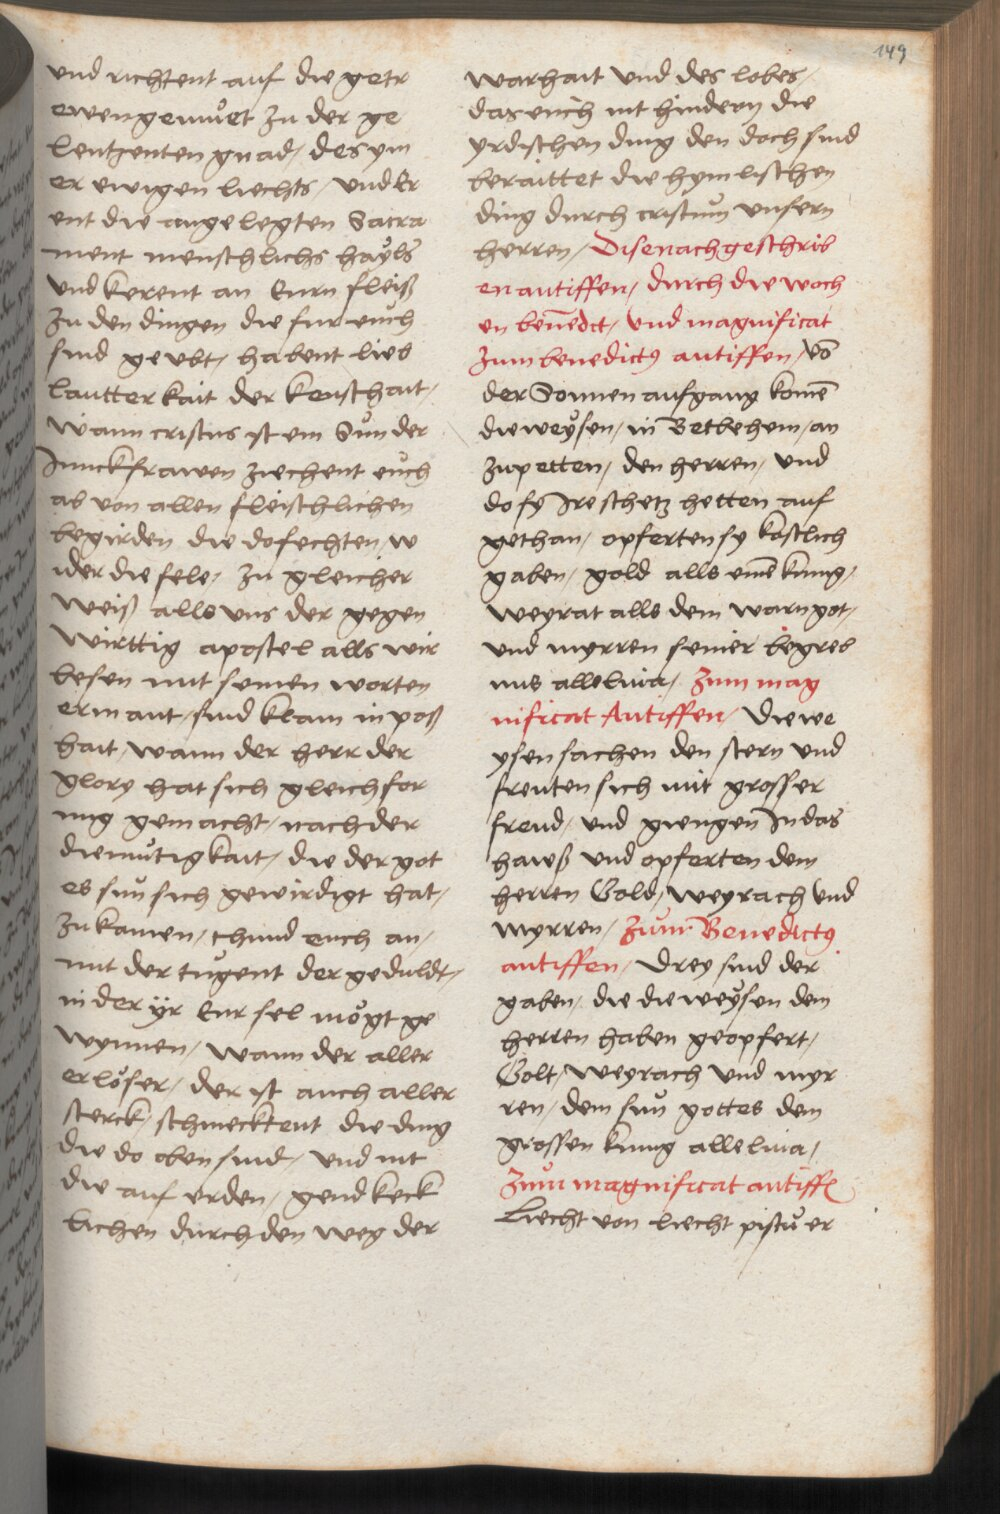 149
und richtent auf die getr
ewen gemuͦet zu der ge
lentzenten gnad / des ym
er ewigen liechts / und Er
ent die angelegten Sacra
ment menschlichs haÿls
und kerent an Eurn fleiß
zu den dingen die fur euch
sind geubt / habent lieb
lautterkait der keuschait /
wann cristus ist ein Sun der
Junckfrawen ziechent euch
ab von allen fleischlichen
begirden die do fechten w
ider die sele / zu gleicher
weiß alls uns der gegen
wirttig apostel alls wir
lesen mit seinen worten
ermant / sind klain in poß
hait / wann der herr der
glory hat sich gleichfor
mig gemacht / nach der
diemutigkait / die der got
es sun sich gewirdigt hat /
zukamen / thund euch an /
mit der tugent der geduldt /
in der ÿr Eur sel moͤgt ge
wynnen / wann der aller
erloͤser / der ist auch aller
sterck / schmecktent die ding
die do oben sind / und nit
die auf erden / gend keck
lichen durch den weg der
warhait und des lobes /
das euch nit hindern die
yrdischen ding den doch sind
beraittet die hymlischen
ding durch cristum unsern
herren / Dise nachgeschrib
en antiffen / durch die woch
en ben̄edct / und magnificat
zum benedictꝰ antiffen / Vō
der Sonnen aufgang komē
die weÿsen / in Betlehem / an
zupetten / den herren / und
do sy Ire schetz hetten auf
gethan / opferten sy kostlich
gaben / gold alls einē kunig /
weyrat alls dem warn got /
und myrren seiner begreb
nus alleluia / zum mag
nificat Antiffen / Die we
ysen sachen den stern und
freuten sich mit grosser
freud / und giengen In das
hawß und opferten dem
herren Gold / weyrach und
myrren / zum Benedictꝰ
antiffen / Drey sind der
gaben / die die weÿsen dem
herren haben geopfert /
Golt / weyrach und myr
ren / dem sun gottes dem
grossen kunig alleluia /
zum magnificat antiffe
Liecht von liecht pistu er